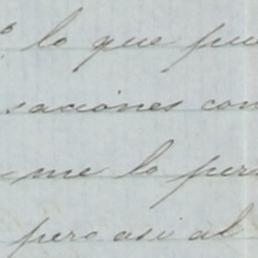 lo que pue
saciones con
me lo per
pero asi al